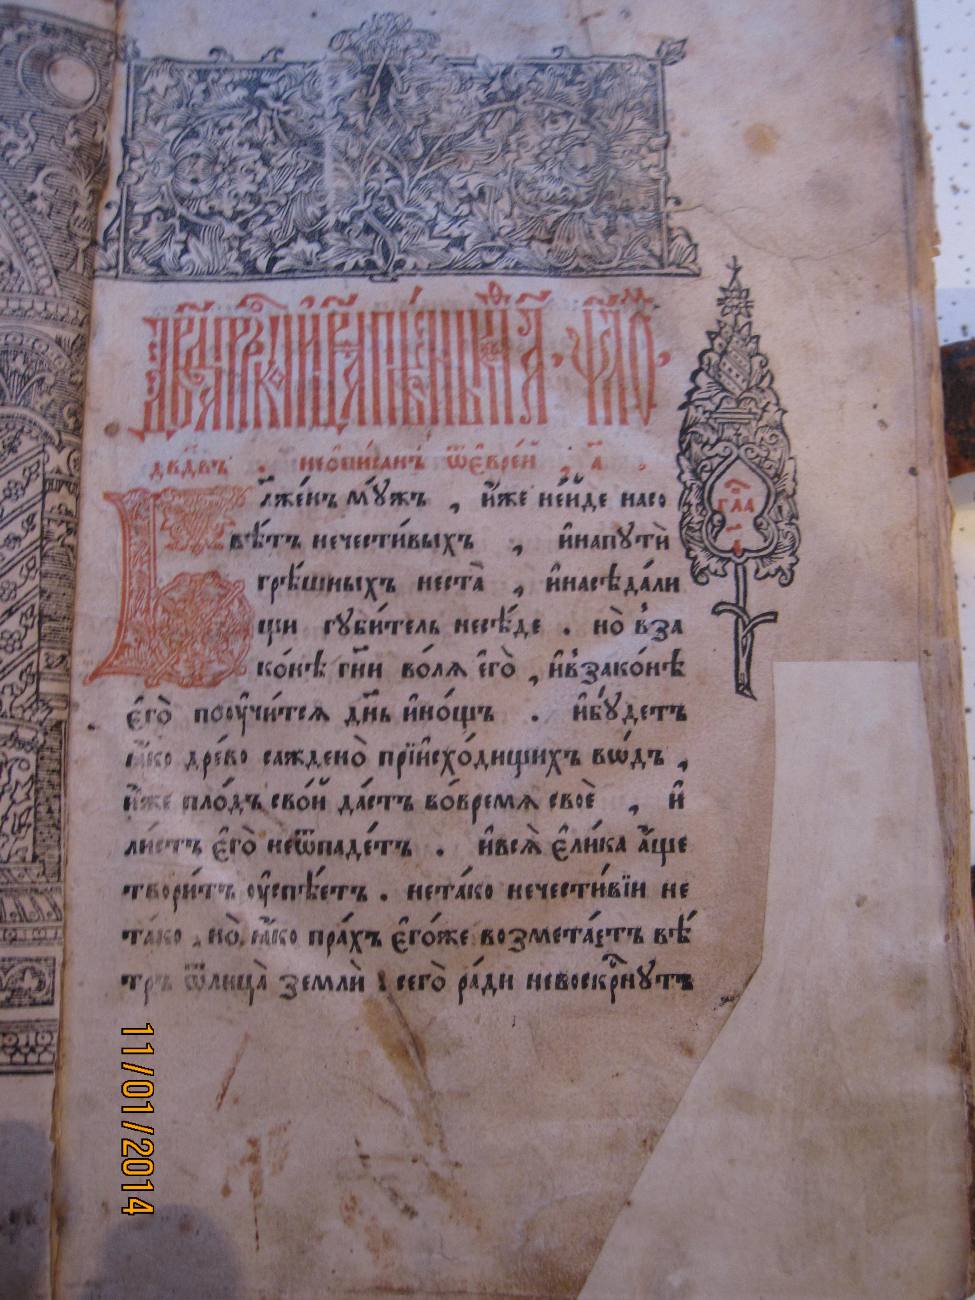 дв҃дв . неѡписанъ ѿеврей , а҃ .
гла
лже́нъ мꙋ́жъ , и҆́же неи́де насо
вѣ́тъ нечести́выхъ , и҆напꙋтѝ
грѣ́шныхъ неста̀ , и҆насѣда́ли
щи гꙋби́тель несѣ́де . но̀ в̾за
ко́нѣ гн҃и во́лѧ є҆го̀ , и҆в̾зако́нѣ
є҆го̀ поѹчи́тсѧ дн҃ь и҆но́щъ . и҆бꙋ́детъ
ꙗ҆́ко дре́во саждено̀ прїи҆схо́дищихъ во́дъ ,
и҆́же пло́дъ сво́й да́стъ во́времѧ своѐ , и҆
ли́стъ є҆го̀ неѿпаде́тъ . и҆всѧ̀ є҆ли́ка а҆́ще
твори́тъ ѹ҆спѣ́етъ . нета́ко нечести́вїи не
та́ко , но̀ ꙗ҆́ко пра́хъ є҆го́же возмета́етъ вѣ́
тръ ѿлица̀ землѝ : сего̀ ра́ди невоскрⷭ҇нꙋтъ
11/01/2014